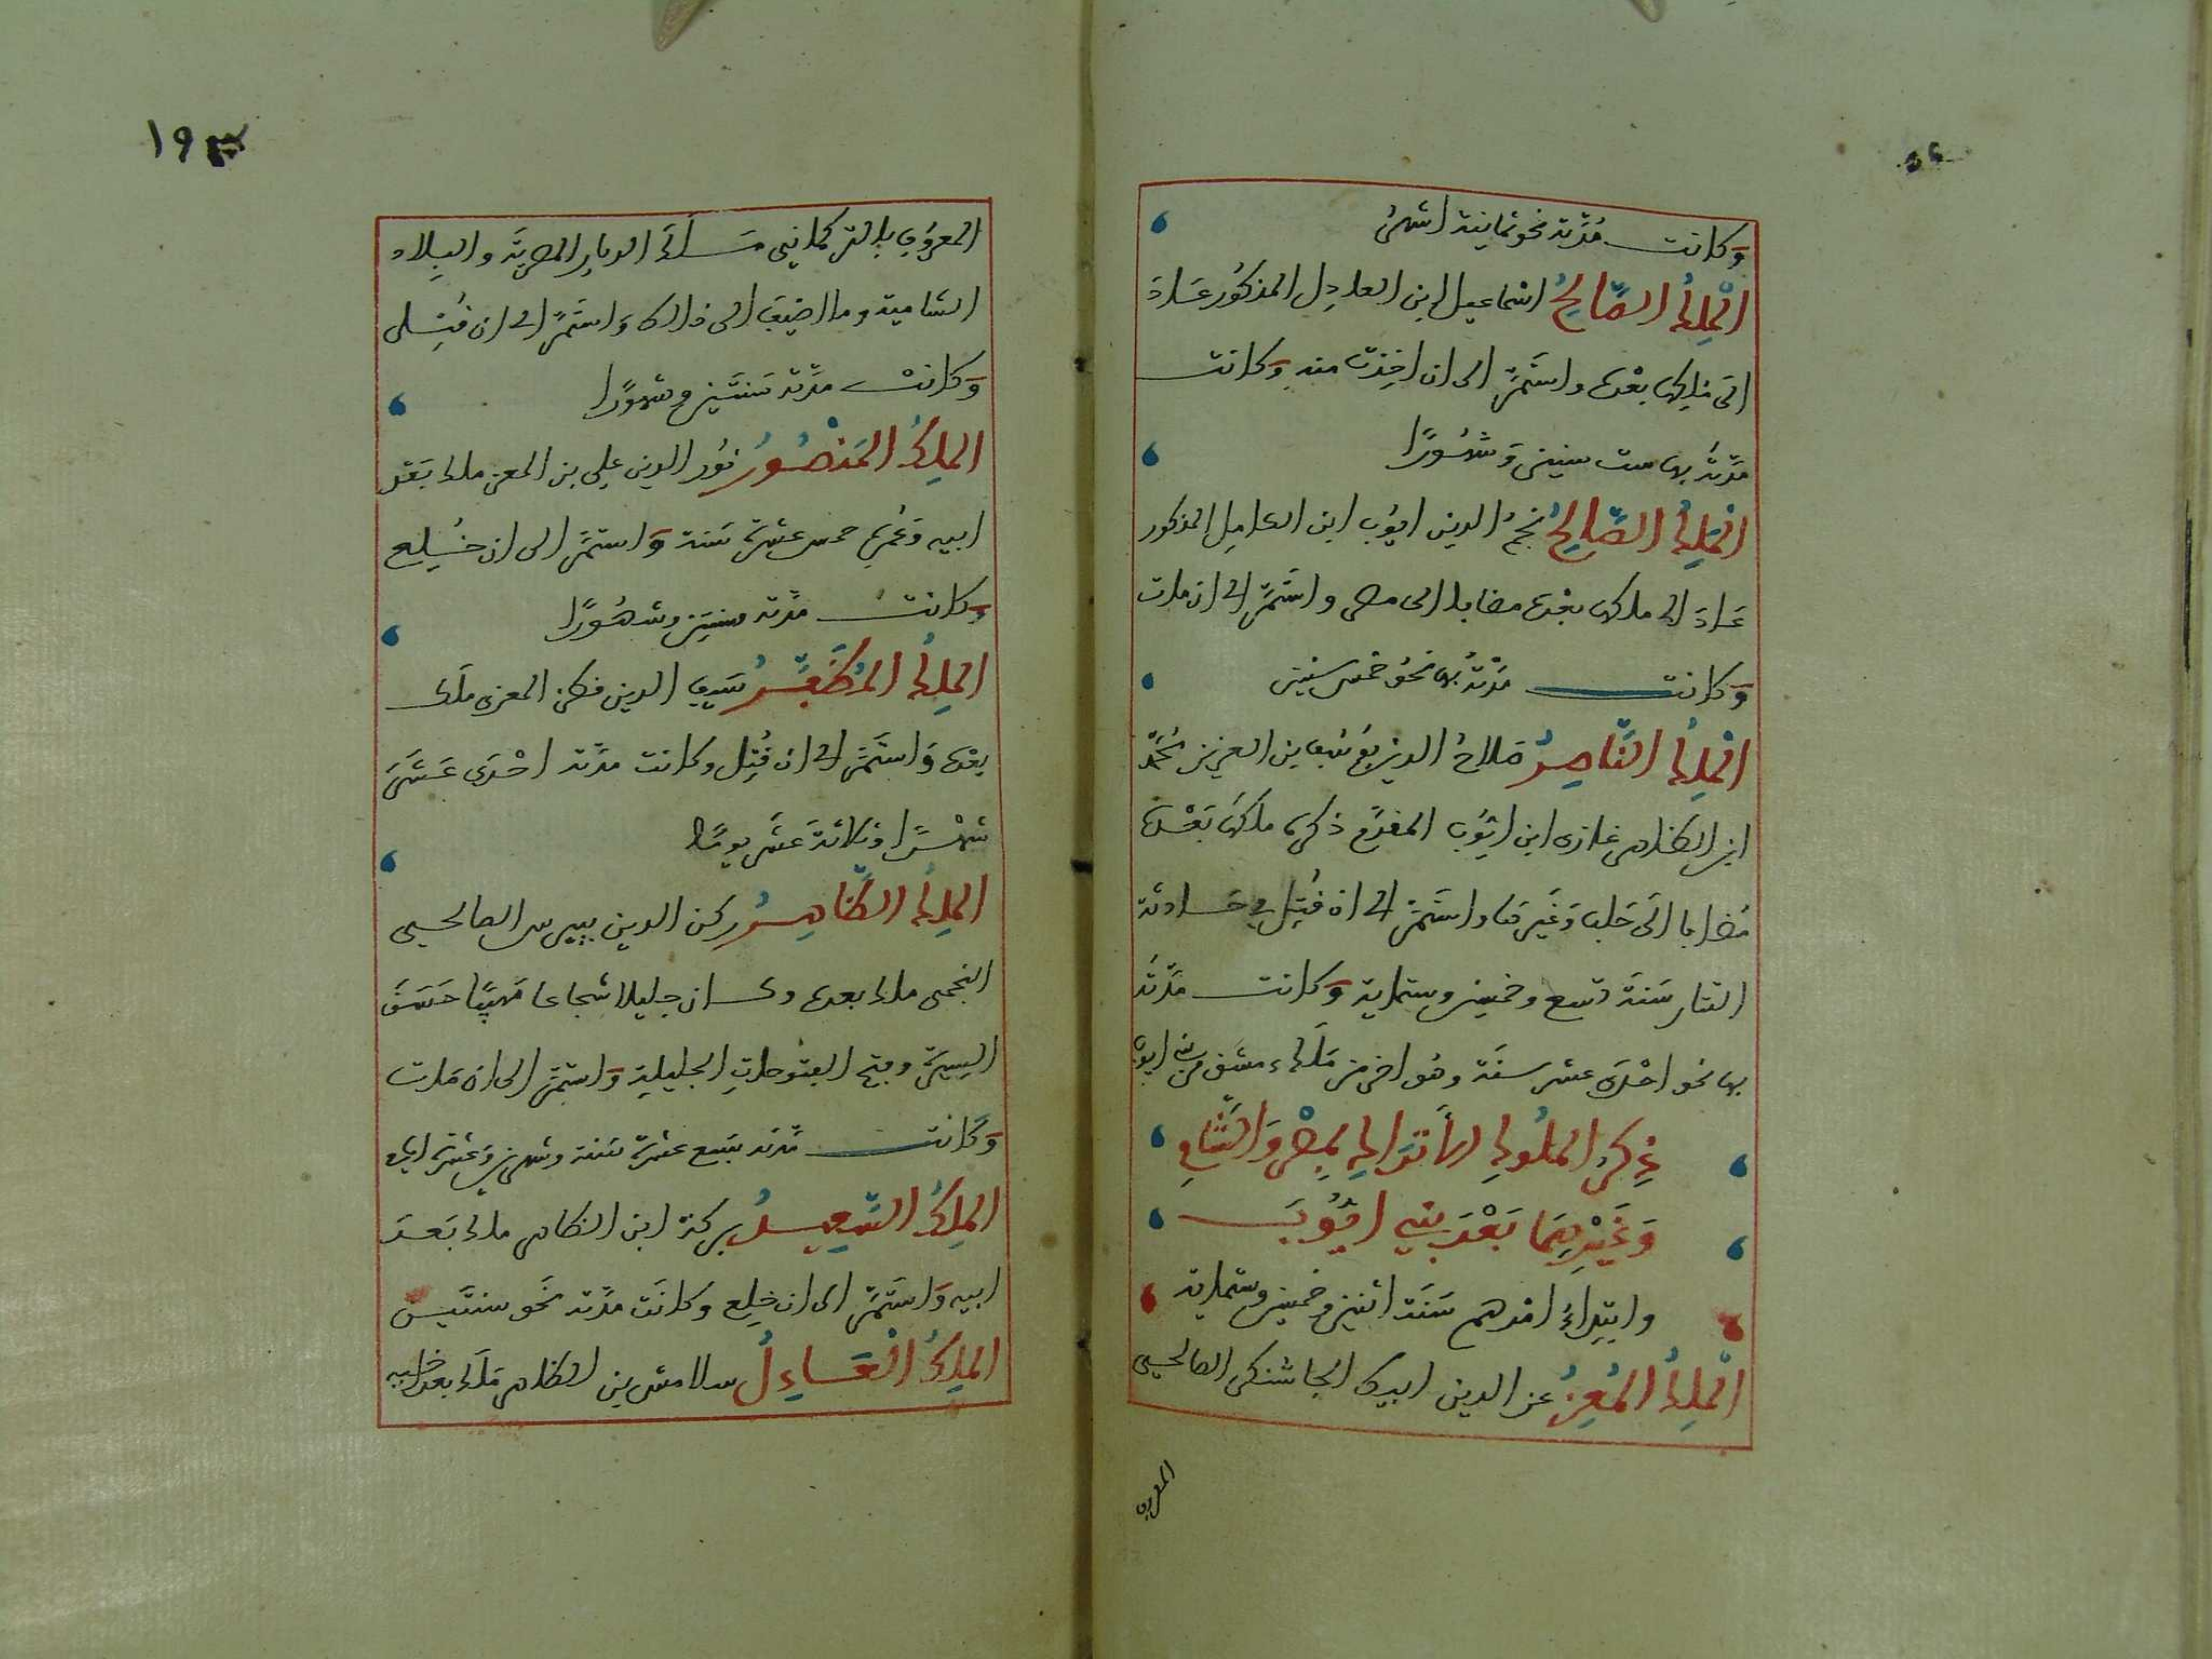 وكانت مُدَّته نحو ثمانية اشهر
الملك الصَّالِحُ اسماعيل ابن العادِل المذكُور عَادَ
الَى مُلِكها بعْدهَا واستَمَرَّ الى ان اخِذت منه وَكانت
مدَّتهُ بها ست سنين وَشهُورًا
الملكُ الصَّالِحُ نجمُ الدين ايُوب ابن الكامِل المذكور
عَادَ الى ملكها بعْدهَا مضافا الى مصر واستَمَرَّ الى ان مات
وَكانت مدَّتهُ بها نحوُ خمس سنين
الملكُ النَّاصِرُ صَلاحُ الدين يوُسُف بن العزيز محَمَّد
ابن الظاهر غازى ابن ايُّوب المقدَّم ذكرهُ ملكهَا بَعْدهَا
مُضافا الَى حَلب وَغَيرهَا واستَمَرَّ الى ان قُتِل في حَادثة
التتار سَنَة تسع وخمسين وستماية وَكانت مدَّتهُ
بها نحو احْدَى عشر سنَة وهُو اخر من مَلَك دمشق من بني ايوب
ذِكرُ الملُوكِ الأتراكِ بمِصْر وَالشَّامِ
وَغَيْرهِمَا بَعْدَ بَنِي ايُّوبَ
وابتِداءُ امْرهم سَنَة اثنين وخمسين وستماية
الملكُ المُعِزُّ عز الدين ايبك الجاشنكير الصالحى
المعروف
١٩٣
المعروُف بالتركمانى مَلَكَ الديار المصريَّة والبِلاد
الشامية وما اضيفَ الى ذالك وَاستَمَرَّ الى ان قُتِل
وَكانتْ مدَّته سَنتَين وشهوُرًا
الملِكُ المَنْصُورُ نوُر الدين علِي بن المعز ملك بَعْد
ابيه وَعُمره خمس عشرة سَنة وَاستمَرَّ الى ان خُلِع
وَكانت مدَّته سنتين وشهُورًا
الملِكُ المُظَفَّرُ سَيف الدين قطز المعزى ملَك
بعْدهَ وَاستَمَرَّ الى ان قُتِل وكانت مدَّته احْدَى عَشَرَ
شهْرًا وثلاثة عَشَر يومًا
الملكُ الظَّاهِرُ ركن الدين بيبرس الصالحى
النجمى ملك بعدهَ وكان جليلا شجاعا مَهيبًا حَسَنَ
السِيرَة وفتح الفتوحاتِ الجليلة وَاستمَرَّ الى ان مَات
وَكَانت مدَّته سَبع عشرة سَنة وشهرين وَعشرة ايام
الملِكُ السَّعِيدُ بركة ابن الظاهر ملك بَعدَ
ابيه وَاستَمَرَّ الى ان خلِع وكانَت مدَّته نحَو سنتَين
الملِكُ العَادِلُ سلامش بن الظاهر مَلَك بعد خلع اخيه